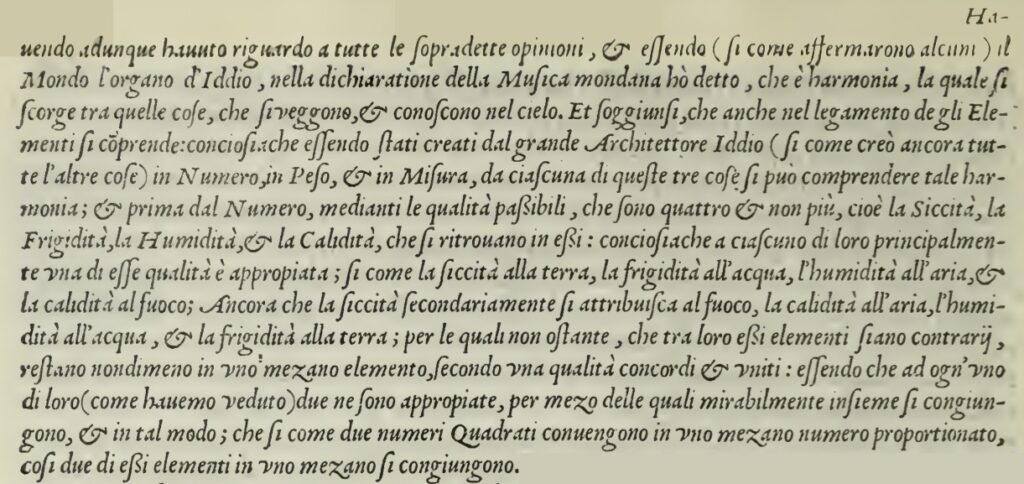 Ha-
uendo adunque hauuto riguardo a tutte le ſopradette opinioni, & eſſendo (ſi come affermarono alcuni) il
Mondo l'organo d'Iddio, nella dichiaratione della Muſica mondana hò detto, che è harmonia, la quale ſi
ſcorge tra quelle coſe, che ſi veggono, & conoſcono nel cielo. Et ſoggiunſi, che anche nel legamento de gli Ele-
menti ſi cõprende: concioſiache eſſendo ſtati creati dal grande Architettore Iddio (ſi come creò ancora tut-
te l'altre coſe) in Numero, in Peſo, & in Miſura, da ciaſcuna di queſte tre coſe ſi può comprendere tale har-
monia; & prima dal Numero, medianti le qualità paſſibili, che ſono quattro & non più, cioè la Siccità, la
Frigidità, la Humidità, & la Calidità, che ſi ritrouano in eſſi: concioſiache a ciaſcuno di loro principalmen-
te vna di eſſe qualità è appropiata; ſi come la ſiccità alla terra, la frigidità all'acqua, l'humidità all'aria, &
la calidità al fuoco; Ancora che la ſiccità ſecondariamente ſi attribuiſca al fuoco, la calidità all'aria, l'humi-
dità all'acqua, & la frigidità alla terra; per le quali non oſtante, che tra loro eſſi elementi ſiano contrarij,
reſtano nondimeno in vno mezano elemento, ſecondo vna qualità concordi & vniti: eſſendo che ad ogn'vno
di loro (come hauemo veduto) due ne ſono appropiate, per mezo delle quali mirabilmente inſieme ſi congiun-
gono, & in tal modo; che ſi come due numeri Quadrati conuengono in vno mezano numero proportionato,
coſi due di eſſi elementi in vno mezano ſi congiungono.